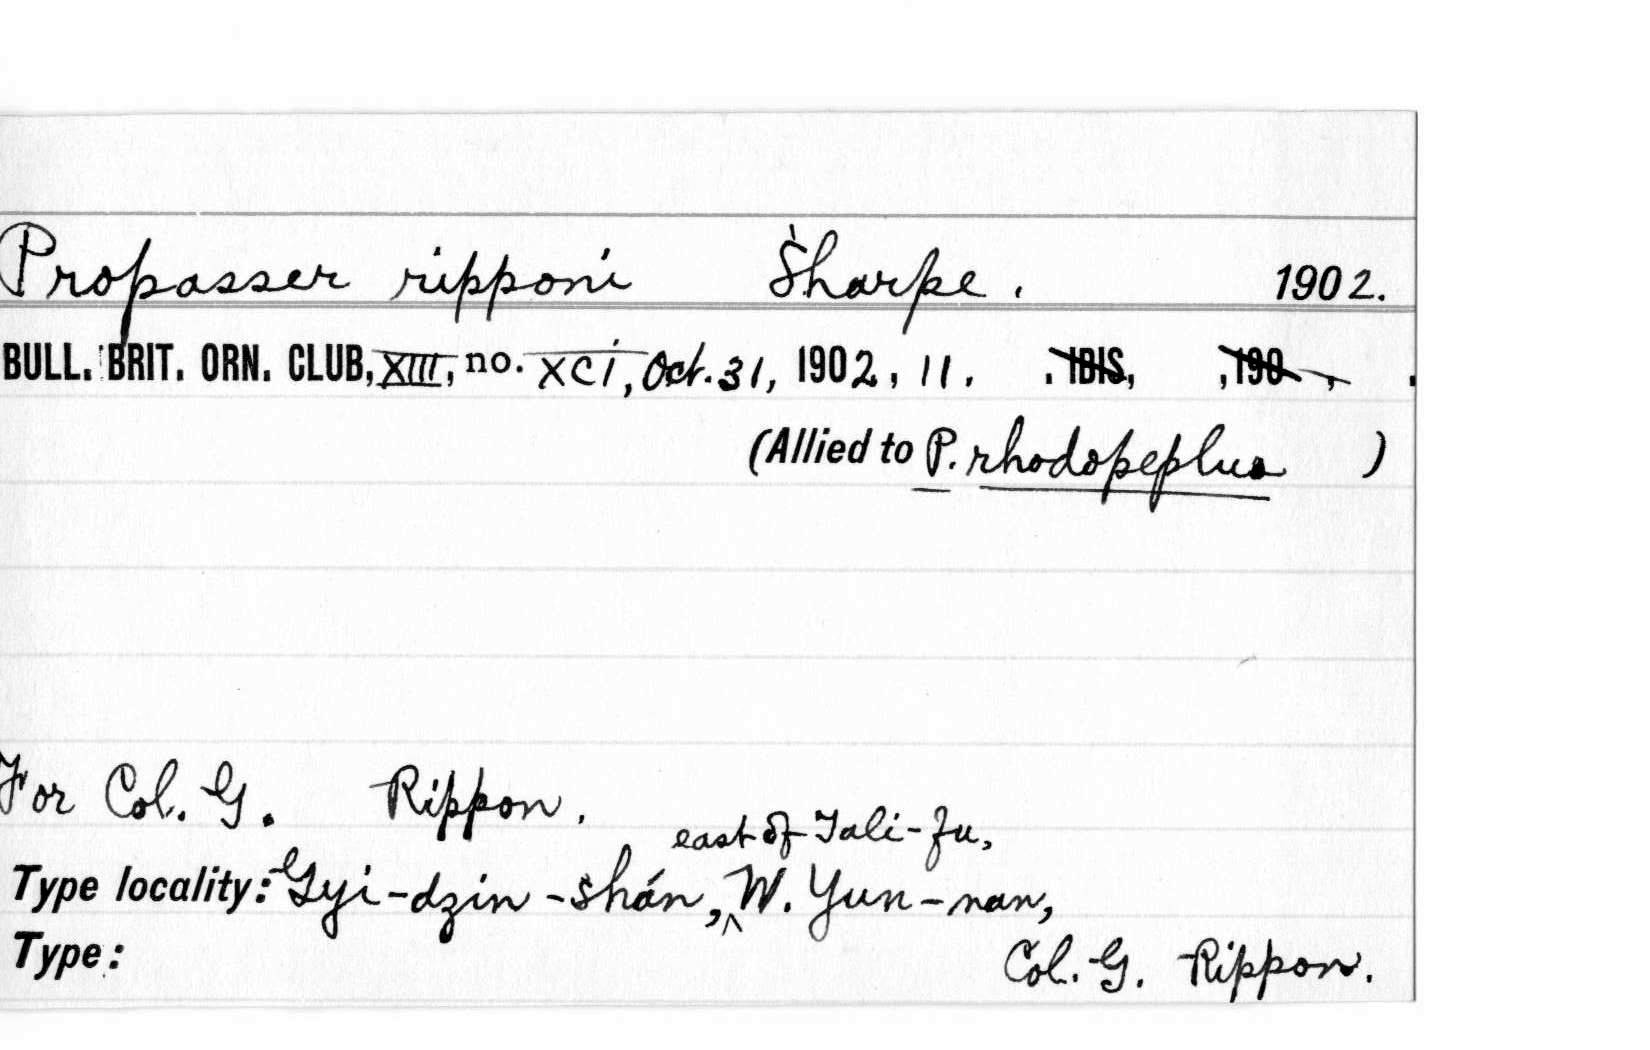 Propasser ripponi Sharpe. 1902.
BULL. BRIT. ORN. CLUB, XIII, no. XCI, Oct. 31, 1902, 11. . IBIS, , 190 , .
(Allied to P. rhodopeplus )
For Col. G. Rippon.
east of Tali-fu,
Type locality: Gyi-dzin-shán, ^ W. Yun-nan,
Type: Col. G. Rippon.